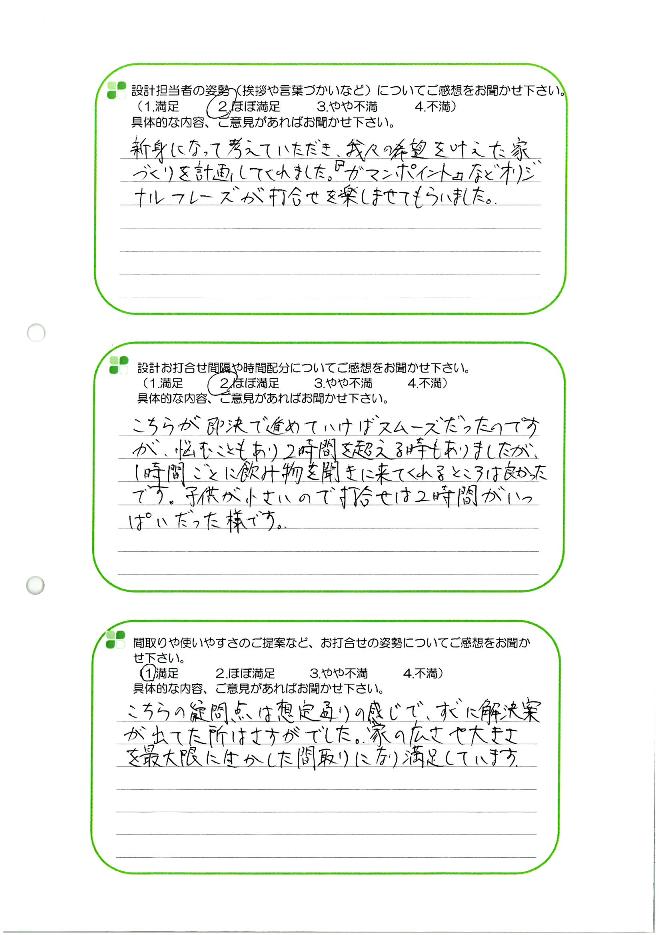 設計担当者の姿勢（挨拶や言葉づかいなど）についてご感想をお聞かせ下さい。
（1.満足 2.ほぼ満足 3.やや不満 4.不満）
具体的な内容、ご意見があればお聞かせ下さい。
新身になって考えていただき、我々の希望を叶えた家
づくりを計画してくれました。『ガマンポイント』などオリジ
ナルフレーズが打合せを楽しませてもらいました。
設計お打合せ間隔や時間配分についてご感想をお聞かせ下さい。
（1.満足 2.ほぼ満足 3.やや不満 4.不満）
具体的な内容、ご意見があればお聞かせ下さい。
こちらが即決で進めていけばスムーズだったのです
が、悩むこともあり2時間を超える時もありましたが、
1時間ごとに飲み物を聞きに来てくれるところは良かった
です。子供が小さいので打合せは2時間がいっ
ぱいだった様です。
間取りや使いやすさのご提案など、お打合せの姿勢についてご感想をお聞か
せ下さい。
（1.満足 2.ほぼ満足 3.やや不満 4.不満）
具体的な内容、ご意見があればお聞かせ下さい。
こちらの疑問点は想定通りの感じで、すぐに解決案
が出てた所はさすがでした。家の広さや大きさ
を最大限に生かした間取りになり満足しています。